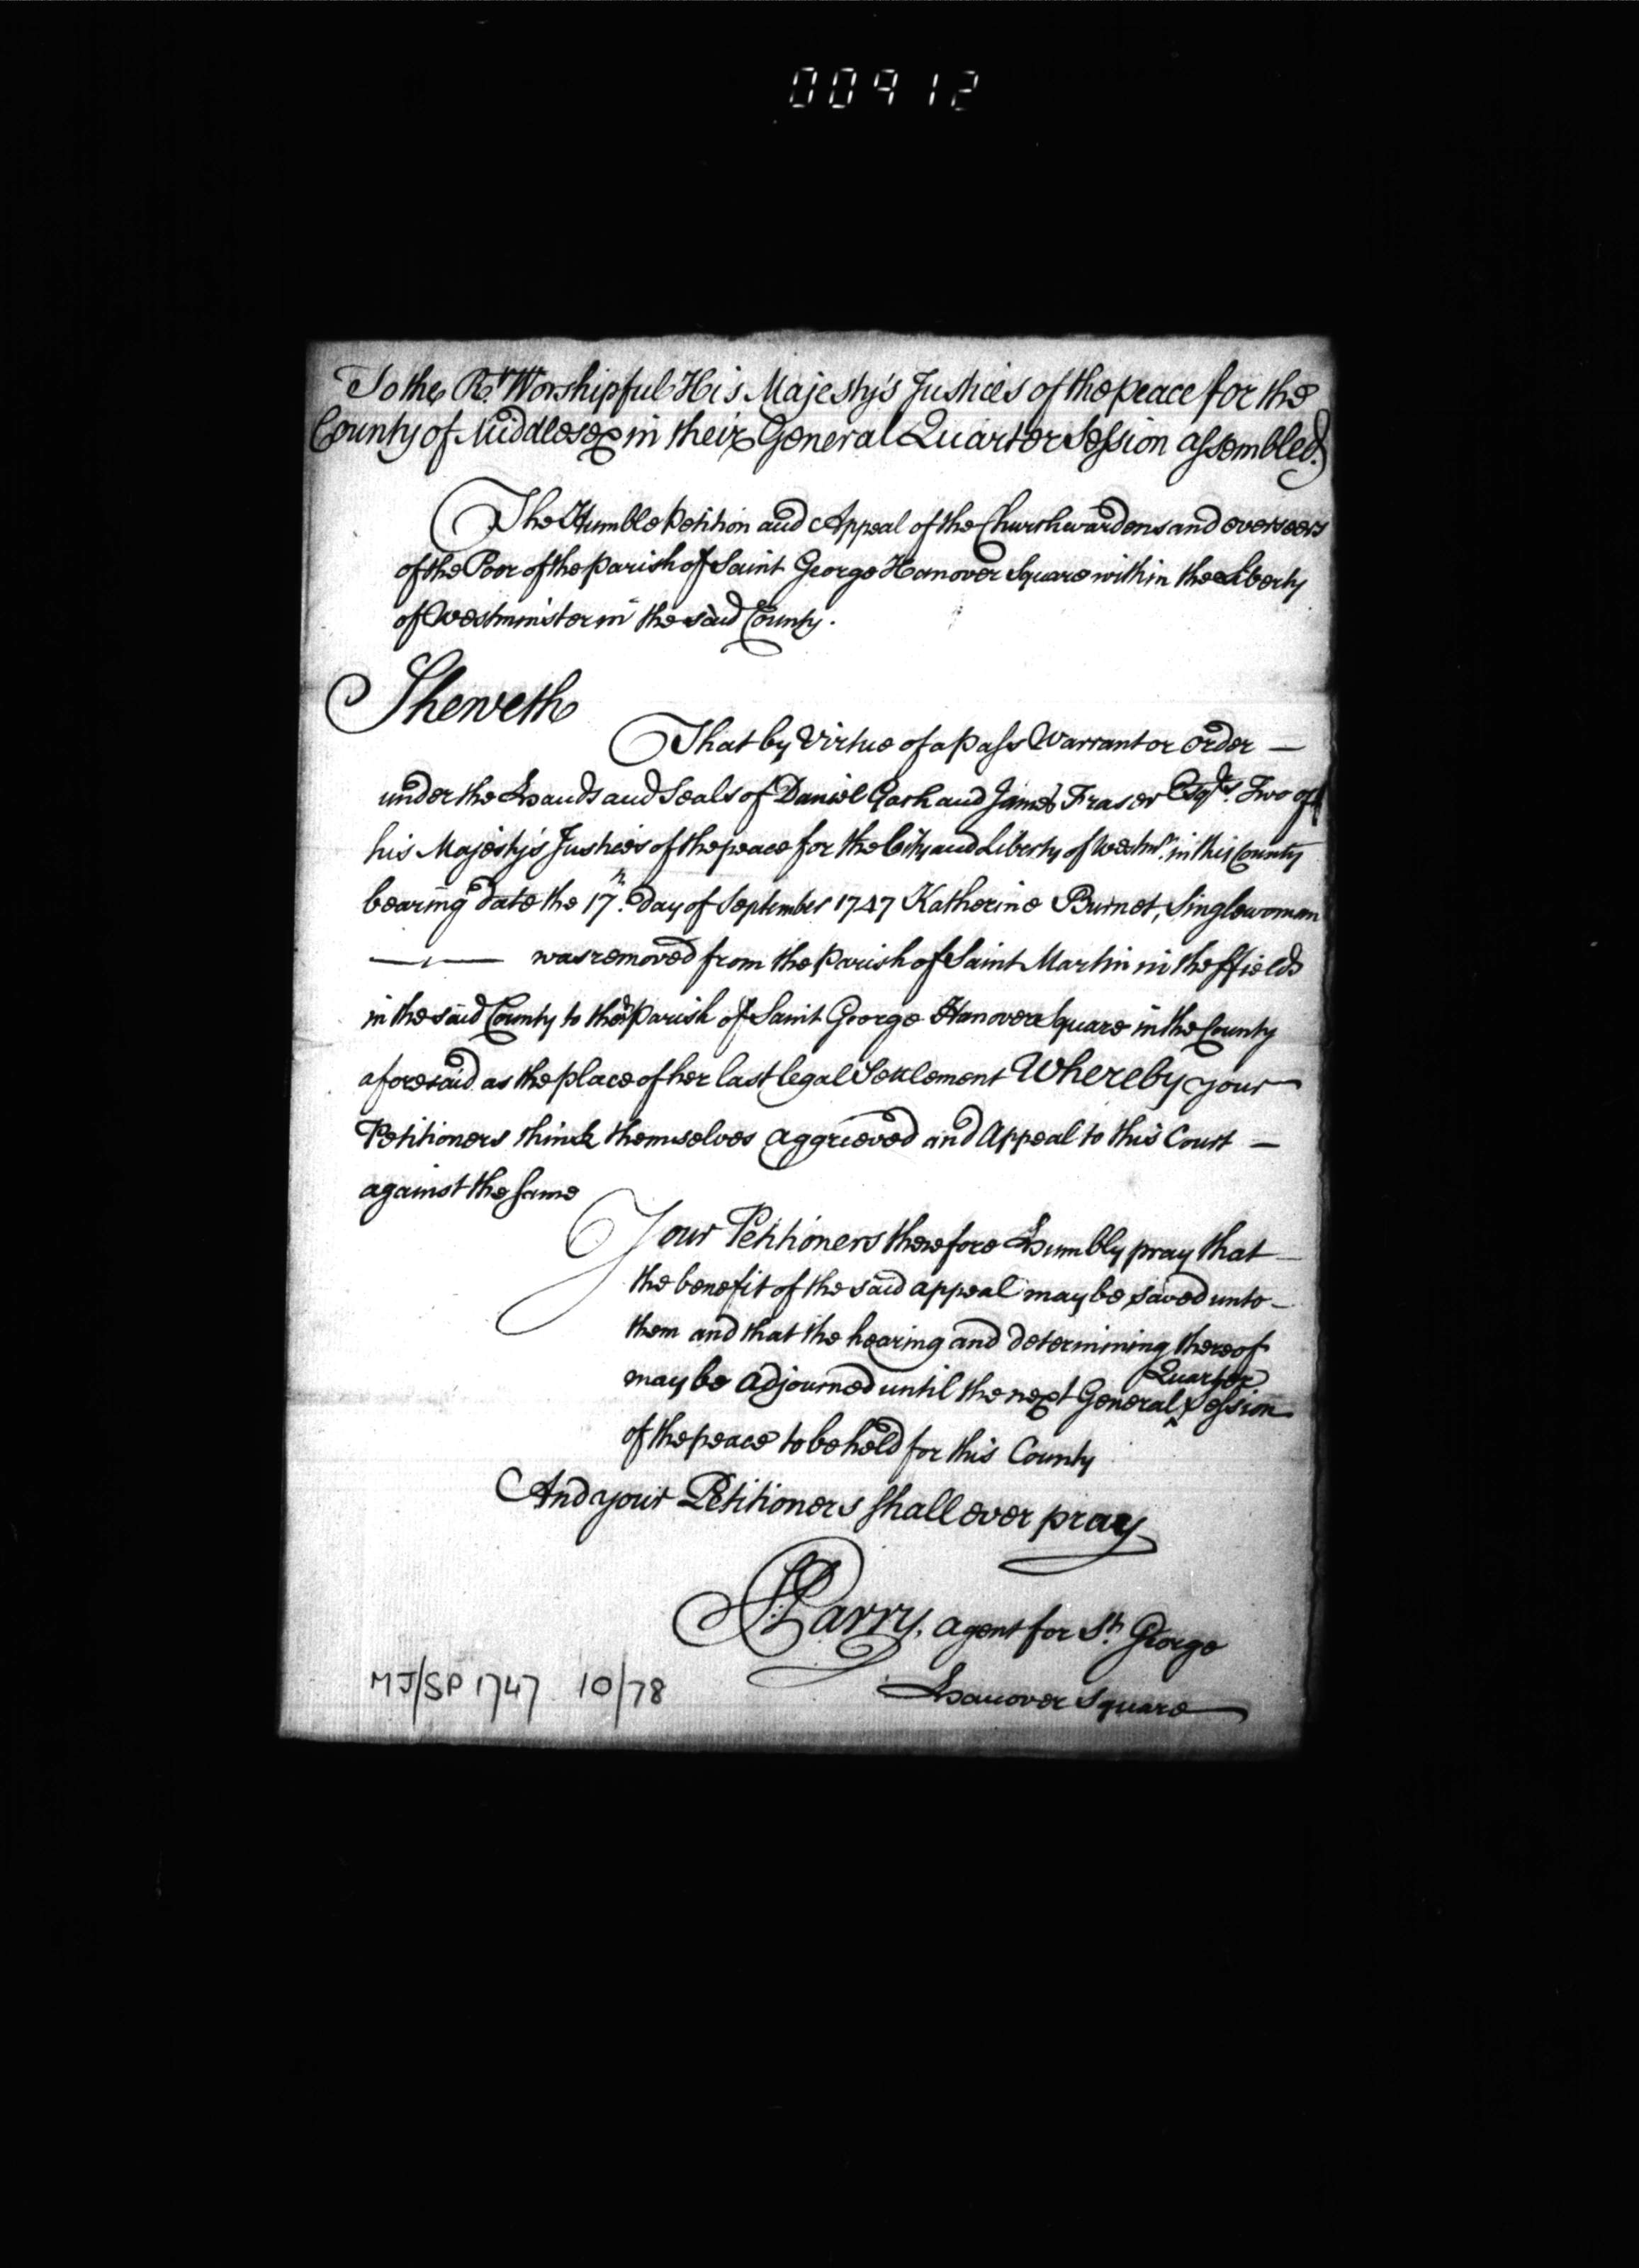 00912
To the Rt. Worshipful His Majesty's Justices of the peace for the
County of Middlesex in their General Quarter Session assembled.
The Humble Petition and Appeal of the Churchwardens and overseers
of the Poor of the parish of Saint George Hanover Square within the Liberty
of Westminster in the said County.
Sheweth
That by Virtue of a pass Warrant or order —
under the hands and Seals of Daniel Gach and James Fraser Esqrs. Two of
his Majesty's Justices of the peace for the City and Liberty of Westmr. in this County
bearing date the 17th. day of September 1747 Katherine Burnet, Singlewoman
— — was removed from the parish of Saint Martin in the ffields
in the said County to the parish of Saint George Hanover Square in the County
aforesaid as the place of her last legal Settlement Whereby your
Petitioners think themselves aggrieved and Appeal to this Court —
against the same
Your Petitioners therefore humbly pray that —
the benefit of the said appeal may be saved unto —
them and that the hearing and determining thereof
may be adjourned until the next General Quarter Session
of the peace to be held for this County
And your Petitioners shall ever pray
Parry, agent for St. George
Hanover Square
MJ/SP 1747 10/78